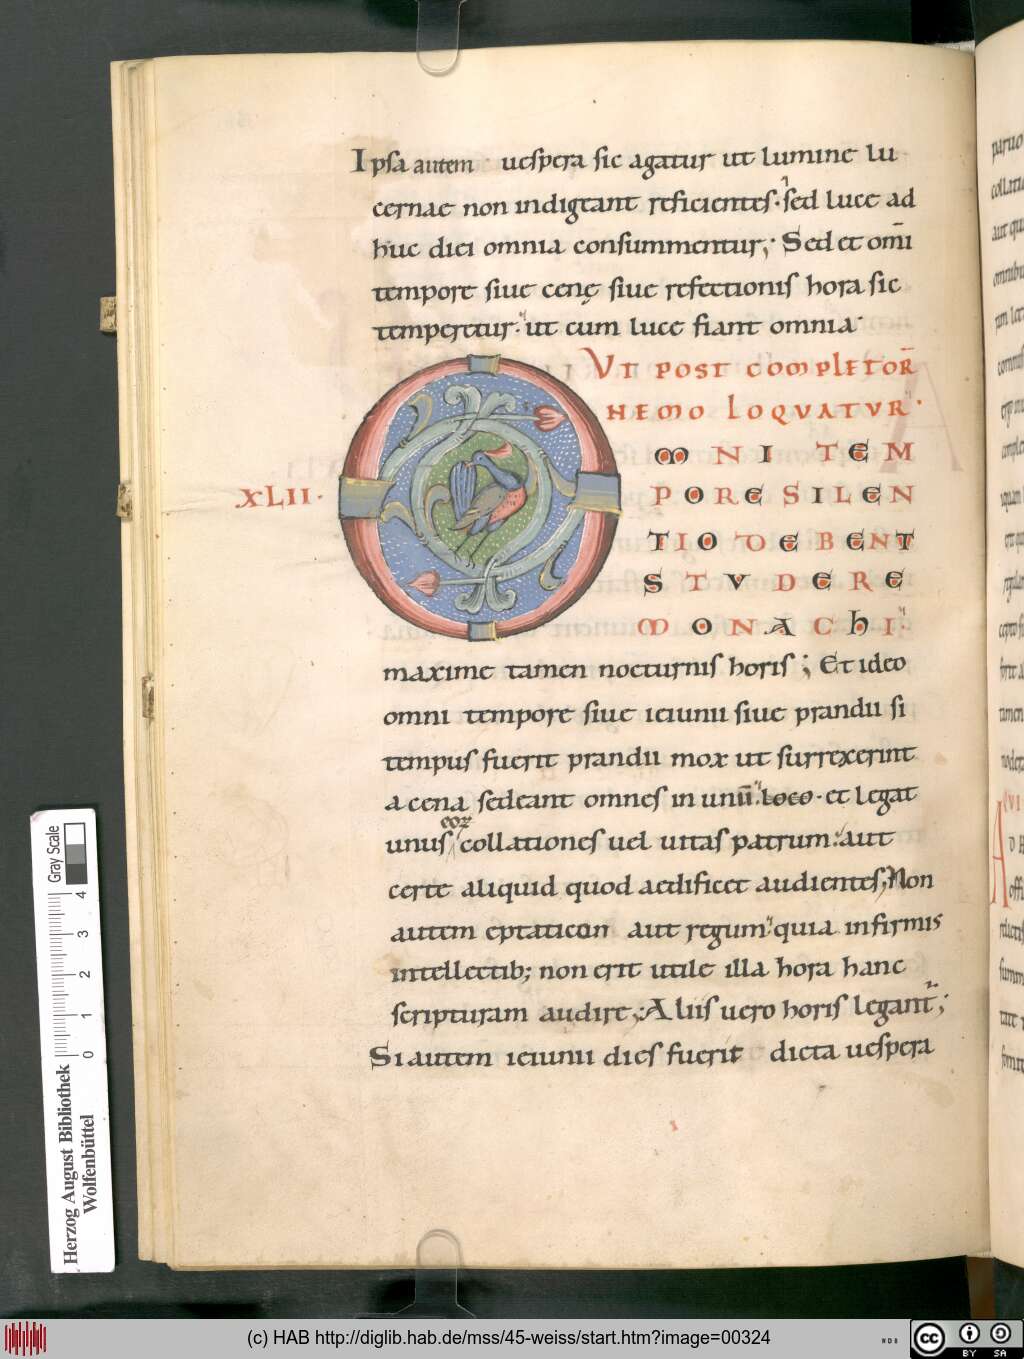 Ipsa autem uespera sic agatur ut lumine lu
cernae non indigeant reficientes. sed luce ad
huc diei omnia consummentur; Sed et om̄i
tempore siue cenę siue refectionis hora sic
temperetur. ut cum luce fiant omnia
VT POST COMPLETOR̄
NEMO LOQVATVR.
XLII.
OMNI TEM
PORE SILEN
TIO DEBENT
STVDERE
MONACHI.
maxime tamen nocturnis horis; Et ideo
omni tempore siue ieiunii siue prandii si
tempus fuerit prandii mox ut surrexerint
a cena sedeant omnes in unū. loco. et legat
eoꝝ
unus collationes uel uitas patrum. aut
certe aliquid quod aedificet audientes; Non
autem eptaticon aut regum. quia infirmis
intellectib; non erit utile illa hora hanc
scripturam audire; Aliis uero horis legant̃;
Si autem ieiunii dies fuerit dicta uespera
paruo
Gray Scale
4
3
2
1
0
Herzog August Bibliothek
Wolfenbüttel
(c) HAB http://diglib.hab.de/mss/45-weiss/start.htm?image=00324
cc
BY SA